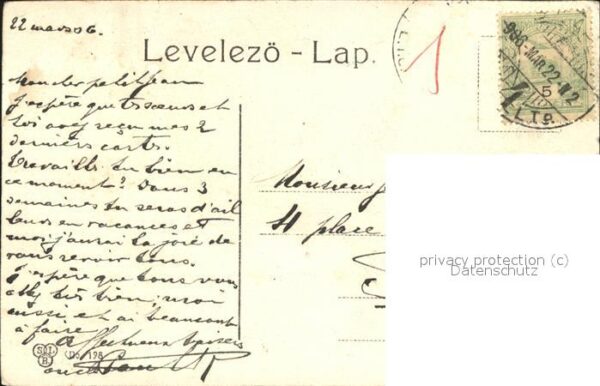 22 mars 06.
Levelezö - Lap.
Mon cher petit Jean
J'espère que tes soeurs et
toi avez reçu mes 2
derniers cartes.
Travailles tu bien en
ce moment? Dans 3
semaines tu seras d'ail
leurs en vacances et
moi j'aurai la joie de
vous revoir tous.
J'espère que tous vous
allez très bien; moi
aussi et ai beaucoup
à faire
Affectueux baisers
Monsieur
4 place
906 MAR 22
5
privacy protection (c)
Datenschutz
S.L.
B.